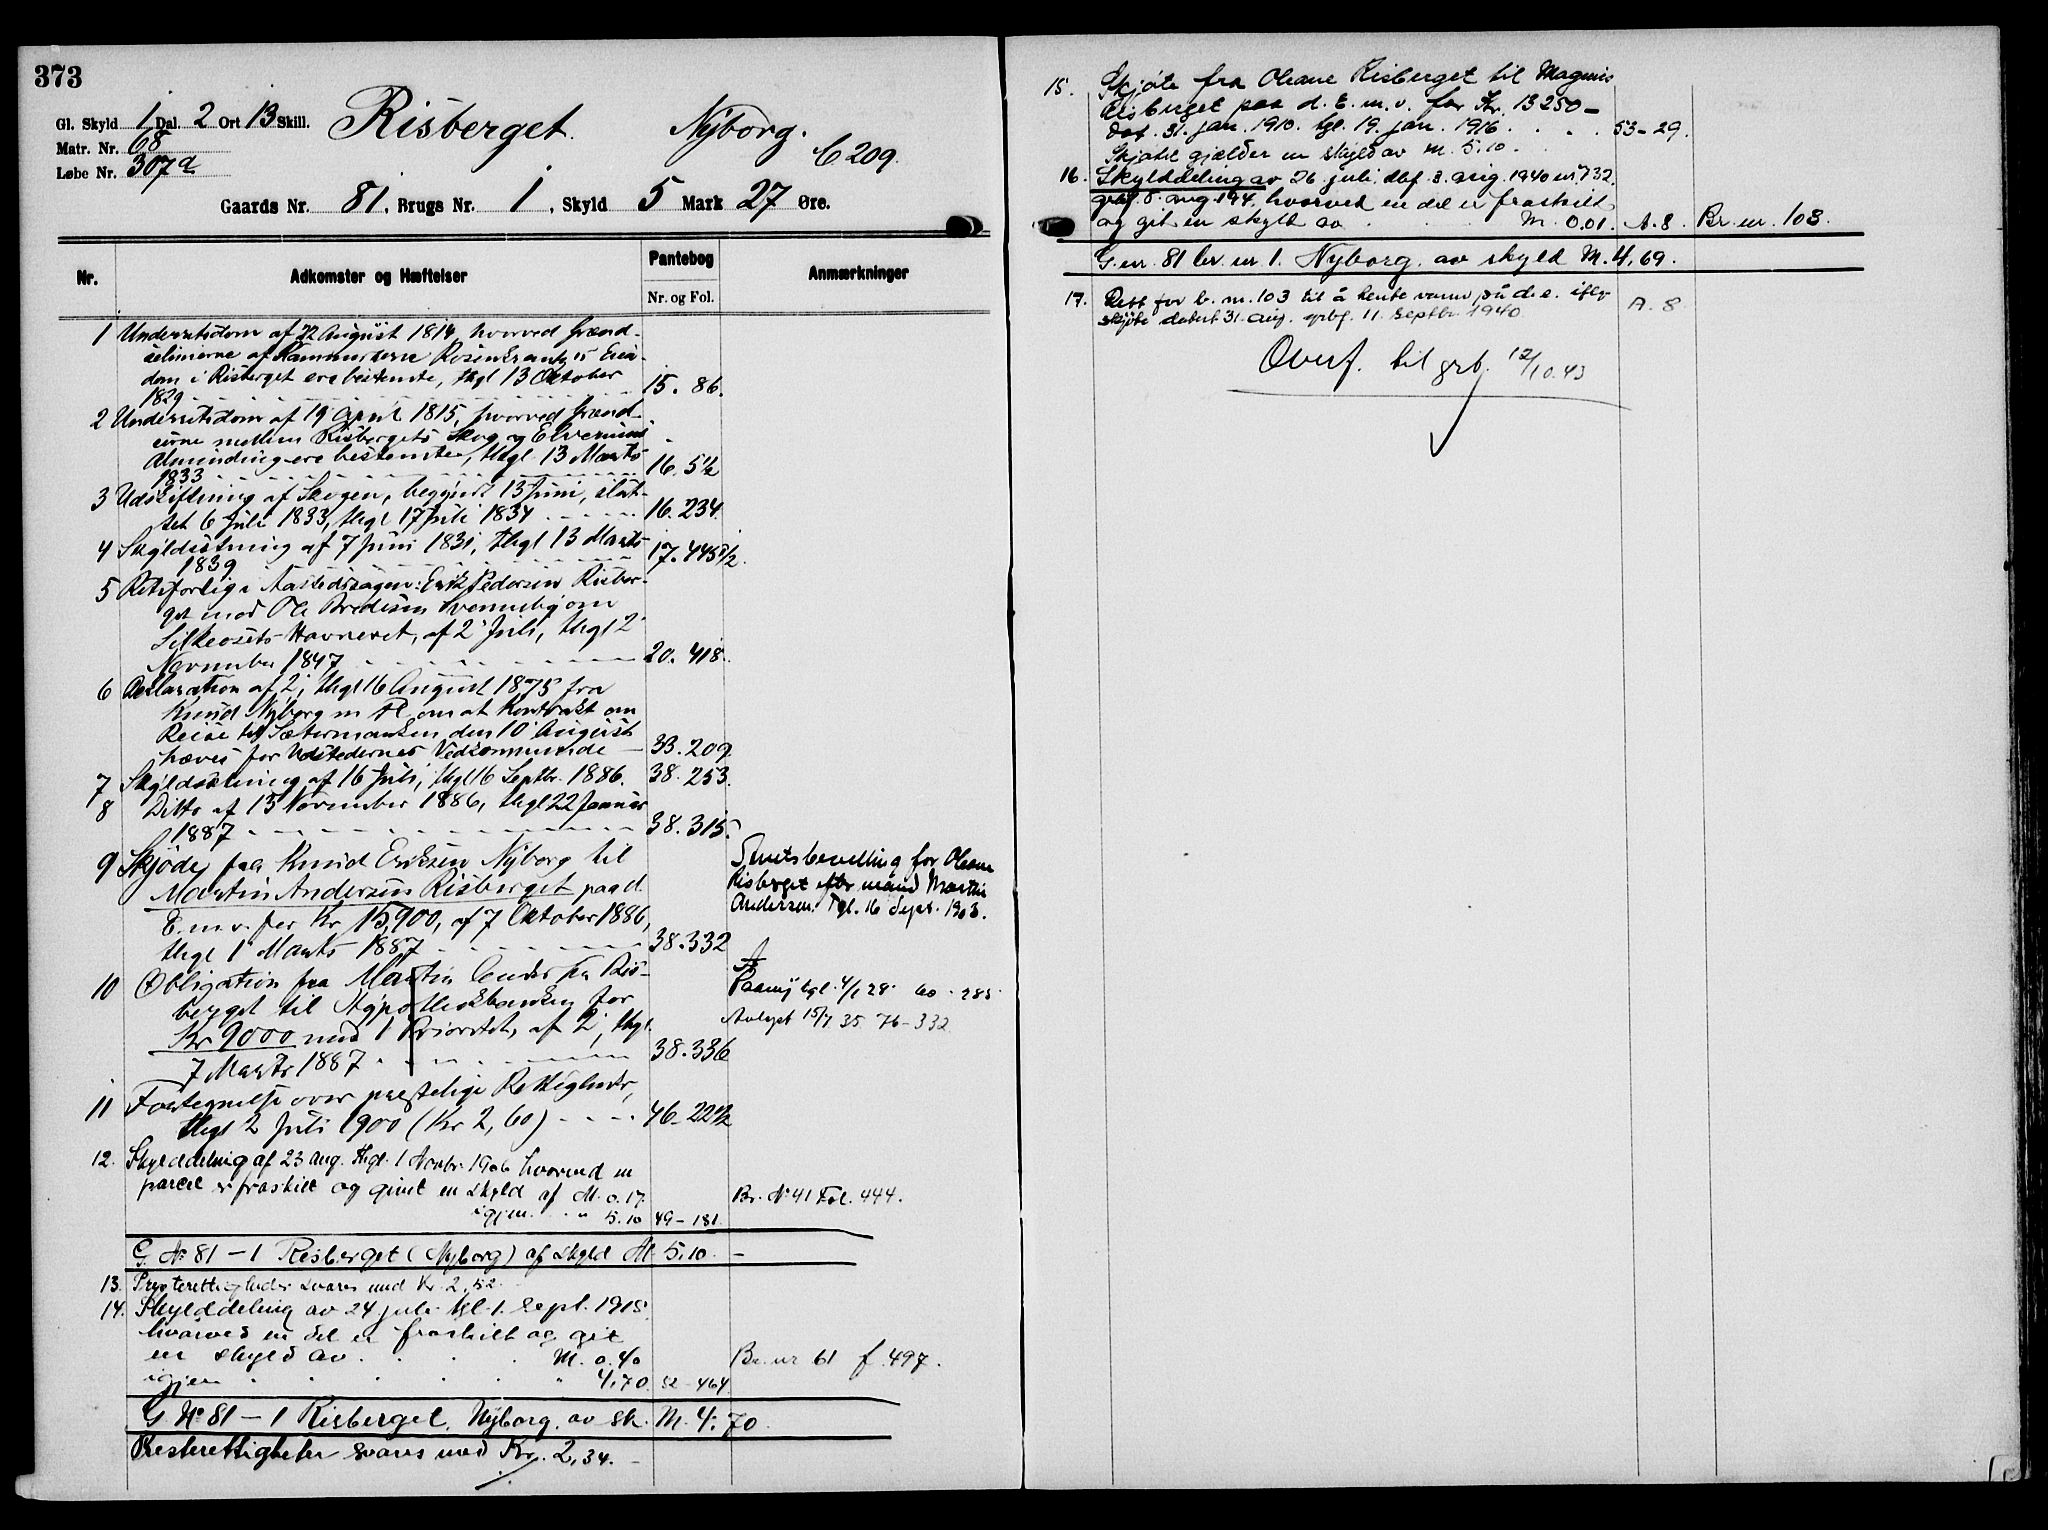 373
Gl. Skyld 1 Dal. 2 Ort 13 Skill.
Matr. Nr. 68
Løbe Nr. 307a
Risberget. Nyborg.
b 209.
Gaards Nr. 81, Brugs Nr. 1, Skyld 5 Mark 27 Øre.
Nr. Adkomster og Hæftelser Pantebog Anmærkninger
Nr. og Fol.
1 Underretsdom af 22 August 1814, hvorved Grænd-
selinierne af Kammerherre Rosenkrantz's Eien-
dom i Risberget ere bestemte, thgl 13 Oktober
1829 15. 86.
2 Underretsdom af 19 April 1815, hvorved Grænd-
serne mellem Risbergets Skog og Elverums
Alminding ere bestemte, thgl. 13 Marts
1833 16. 54
3 Udskiftning af Skogen, begyndt 13 Juni, slut-
tet 6 Juli 1833, thgl 17 Juli 1834 16. 234.
4 Skyldsetning af 7 Juni 1831, thgl 13 Marts
1839 17. 445 1/2.
5 Retsforlig i Aastedssagen: Erik Pedersen Risber-
get mod Ole Bredesen Svenneby om
Havneret, af 2 Juli, thgl 2
November 1847 20. 418.
6 Deklaration af 2, thgl 16 August 1875 fra
Knud Nyborg m fl. om at Kontrakt om
den 10 August
hæves for Udstedernes Vedkommende 33. 209.
7 Skyldsetning af 16 Juli, thgl 16 Septbr. 1886. 38. 253.
8 Ditto af 15 November 1886, thgl 22 Januar
1887 38. 315.
9 Skjøde fra Knud Eriksen Nyborg til
Martin Andersen Risberget paa d.
E. m. v. for Kr 15,900, af 7 Oktober 1886,
thgl 1 Marts 1887 38. 332
Skiftebevilling for Oleane
Risberget efter mand Martin
Andersen. Tgl. 16 Sept. 1903.
10 Obligation fra Martin Andersen Ris-
berget til Hypothekbanken for
Kr 9000 med 1 Prioritet, af 2, thgl.
7 Marts 1887 38. 336
Paany tgl. 4/1 28. 60 - 285
Avlyst 15/7 35 76 - 332
11 Fortegnelse over præstelige Rettigheder,
thgl 2 Juli 1900 (Kr 2,60) 46. 224/2
12. Skylddeling af 23 Aug. thgl. 1 Novbr 1906 hvorved en
parcel er fraskilt og givet en skyld af M. 0.17.
igjen " 5.10 49 - 181. Br. No 41 Fol. 444.
G. No 81 - 1 Risberget (Nyborg) af skyld M. 5.10. -
13. Presterettigheder svares med Kr. 2,52.
14. Skylddeling av 24. juli tgl. 1. Sept. 1915.
hvorved en del er fraskilt og git
en skyld av . . . . M. 0.40 Br. nr 61 f. 497.
igjen " 4,70. 52 - 464.
G No 81 - 1 Risberget, Nyborg, av sk. M. 4.70.
Presterettigheter svares med Kr. 2,34. -
15. Skjøte fra Oleane Risberget til Magnus
Risberget paa d. E. m. v. for Kr. 13250 -
dat. 31. jan. 1910. tgl. 19. jan. 1916. . . . 53 - 29.
Skjøtet gjælder en skyld av M. 5.10.
16. Skylddeling av 26. juli, dbf. 3. aug. 1940 nr. 732.
grbf. 8. aug. 194. hvorved en del er fraskilt
og git en skyld av M. 0.01. A. 8. Br. nr. 103.
G. nr. 81 br. nr 1. Nyborg, av skyld M. 4,69.
17. Rett for b. nr. 103 til å hente vann på d. e. iflg.
skjøte datert 31. aug. grbf. 11. septbr. 1940. A. 8.
Overf. til grb. 12/10.43